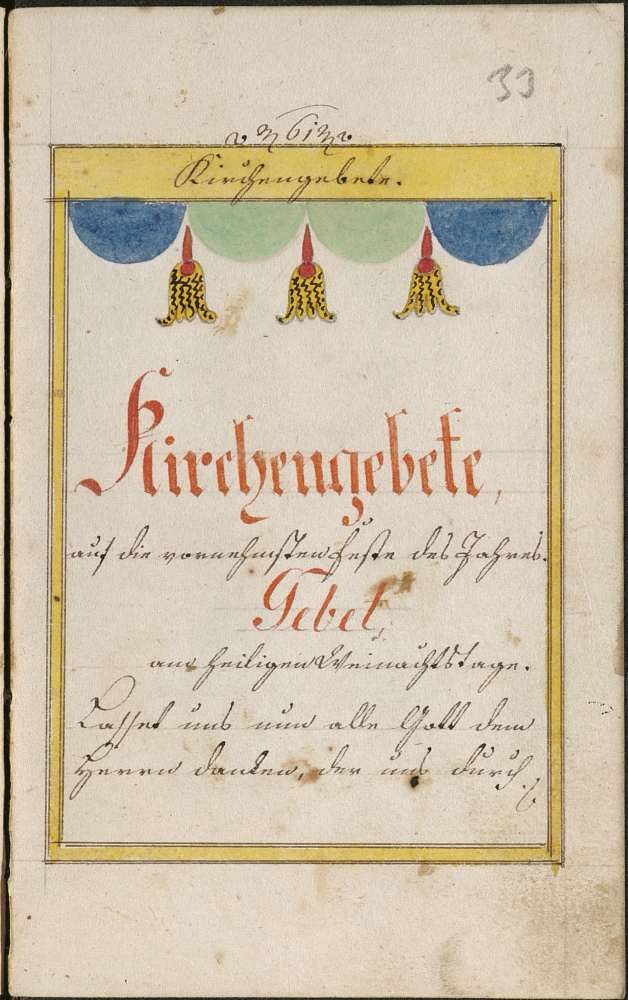 33
61
Kirchengebete.
Kirchengebete,
auf die vornehmsten Feste des Jahres.
Gebet,
am Heiligen Weinachtstage.
Lasset uns nun alle Gott dem
Herrn danken, der uns durch